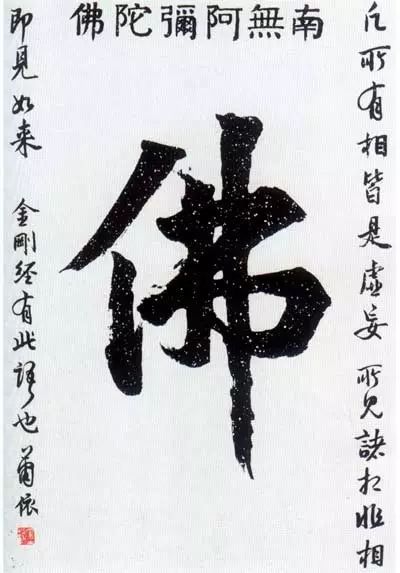 南無阿彌陀佛
凡所有相皆是虛妄 所見諸相非相
佛
即見如来 金剛經有此語也